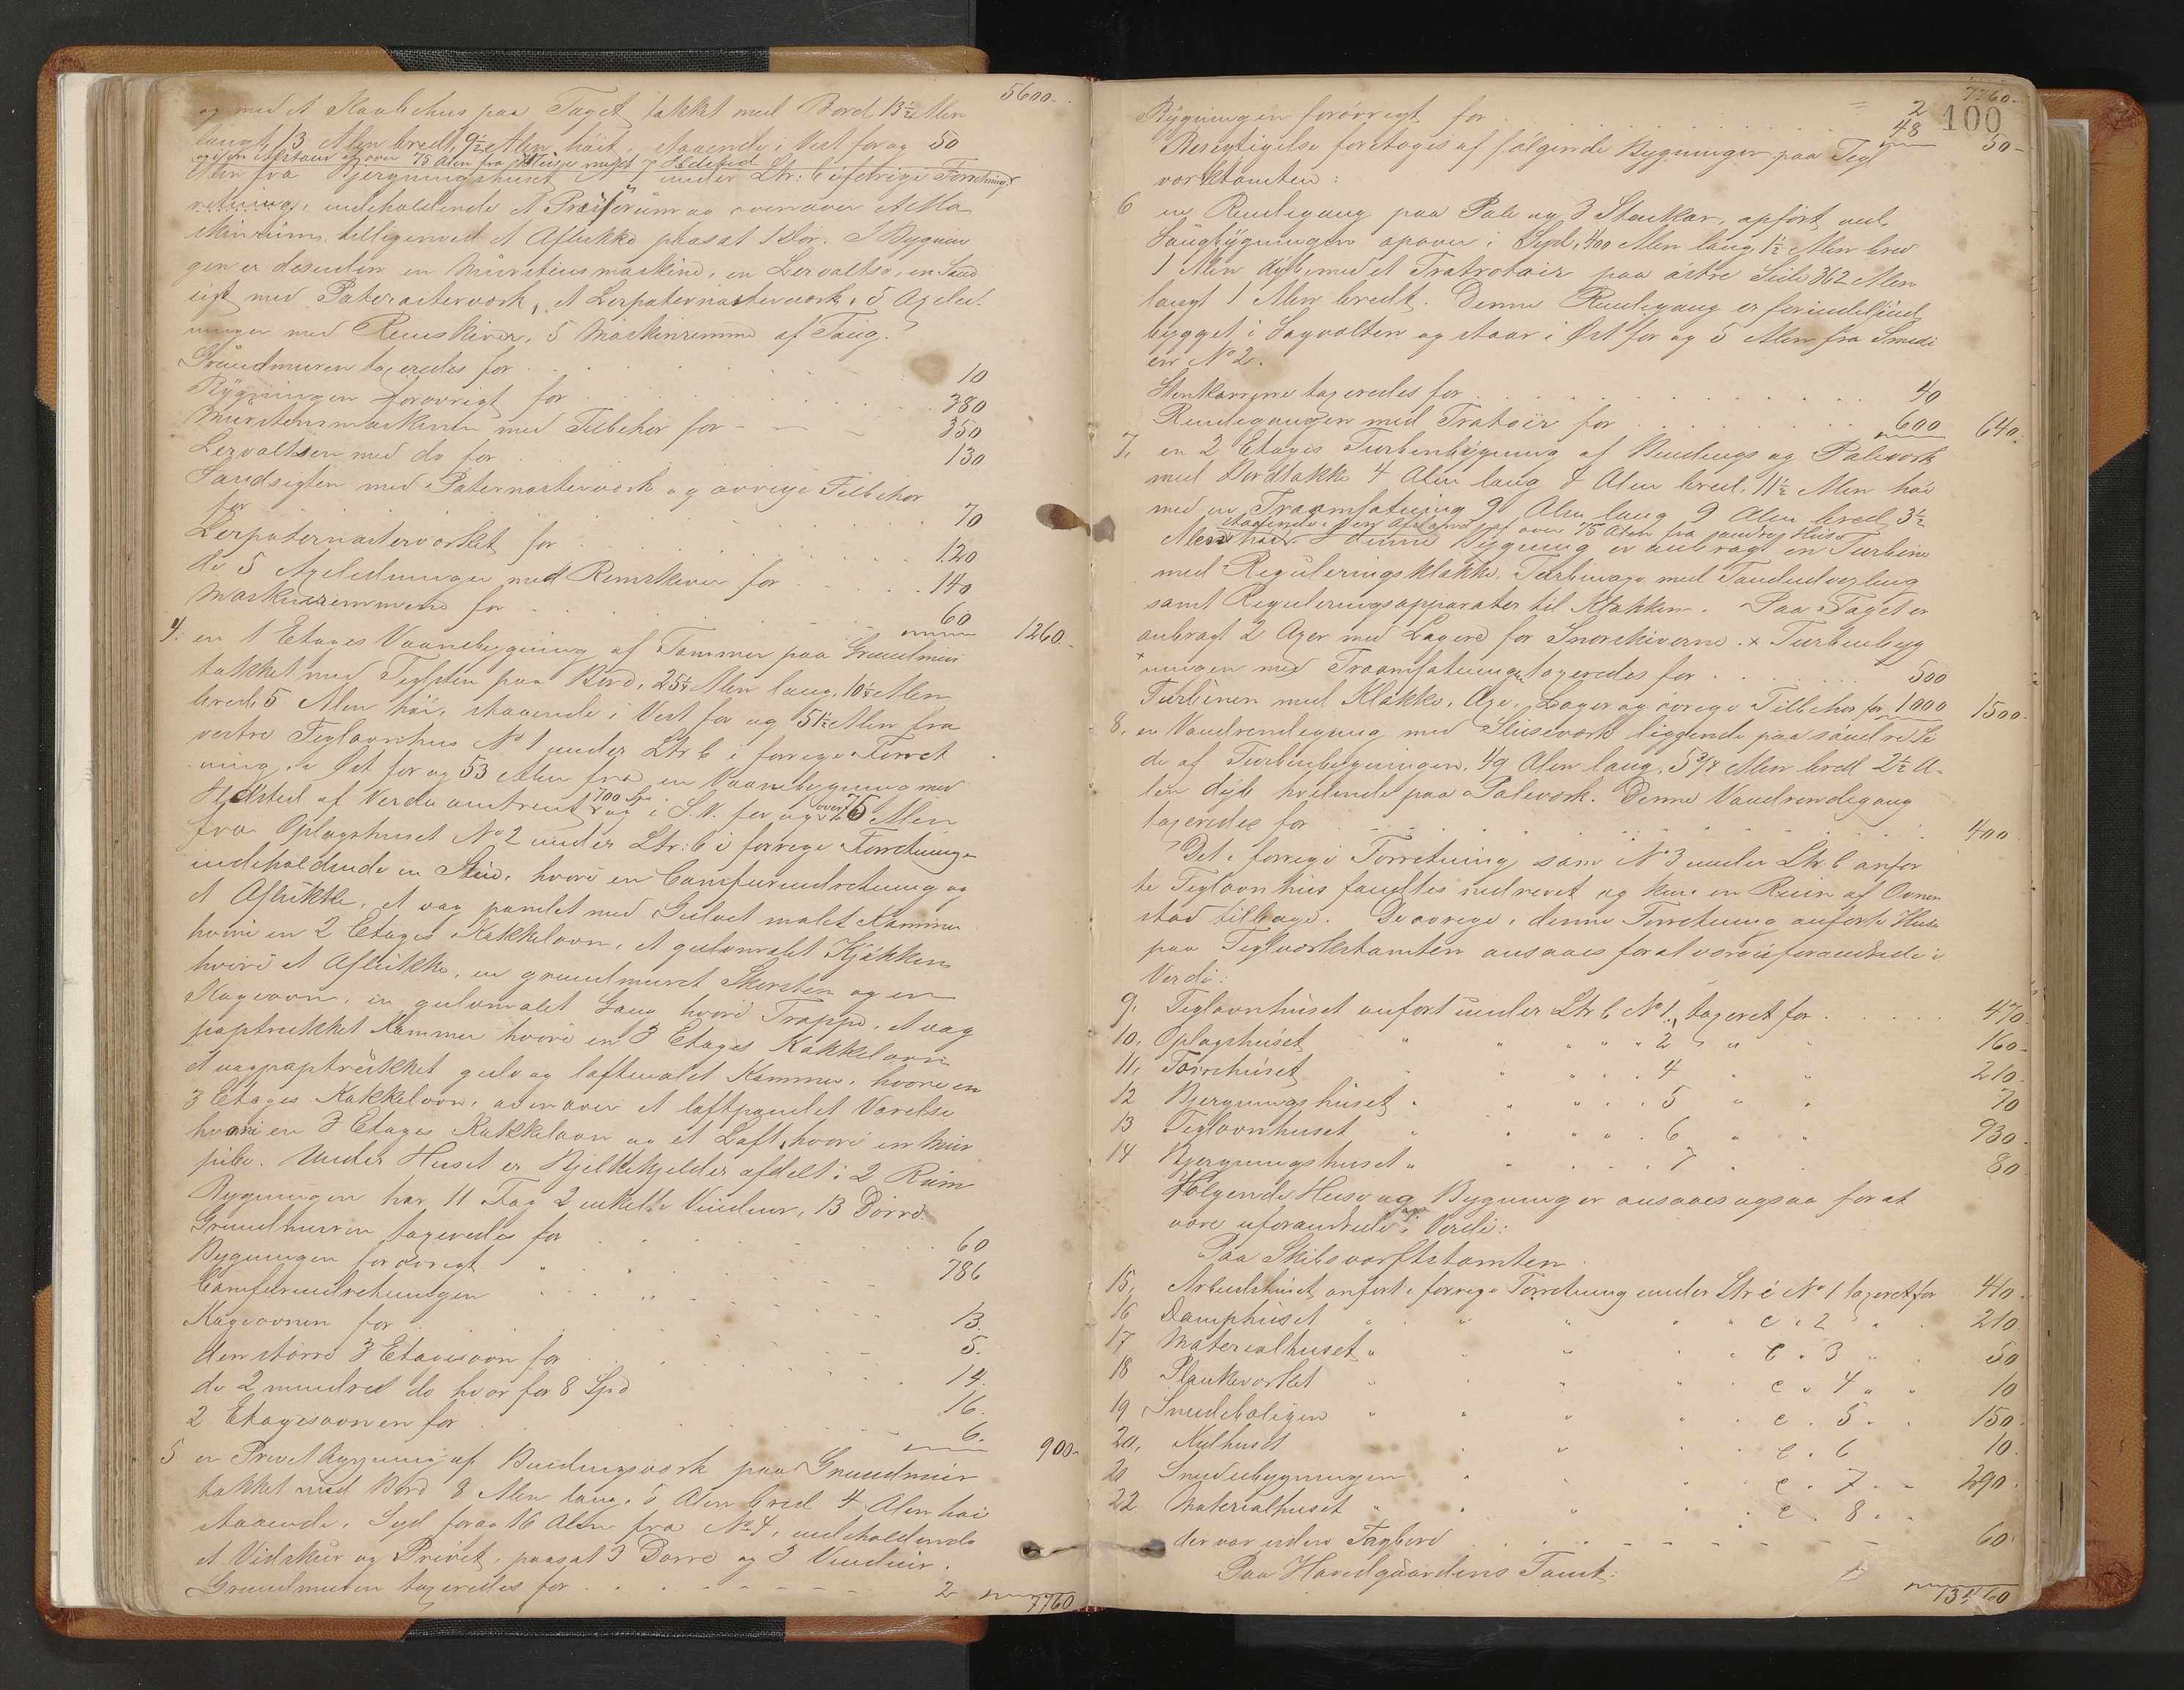 5600.
og med et Kaabehus paa Taget, takket med Bord 13½ Alen
langt, 13 Alen bred, 9½ Alen höit, staaende i Vest for og 50
og i en Afstand af over 75 Alen fra Huse med Ildsted
Alen fra Bjergningshuset No 7 under Ltr: C i forrige Forretning
retning, indeholdende et Presserum og ovenover et Ma
skinrum, tilligemed et Aflukke paasat 1 Dör. I Bygnin
gen er desuden en Murstensmaskine, en Lervaltse, en Sand
sigt med Paternosterværk, et Lerpaternosterværk, 5 Axeled
ninger med Remskiver, 5 Maskinremme af Taug.
Grundmuren taxeredes for 10
Bygningen forövrigt for 380
Murstensmaskinen med Tilbehör for 350
Lervaltsen med do for 130
Sandsigten med Paternosterværk og övrige Tilbehör
for 70
Lerpaternosterværket for 120
de 5 Axeledninger med Remskiver for 140
Maskinremmene for 60 1260.
4. en 1 Etages Vaanebygning af Tömmer paa Grundmur
takket med Teglsten paa Bord, 25¼ Alen lang, 10½ Alen
bred, 5 Alen höi, staaende i Vest for og 51½ Alen fra
vestre Teglovnhus No 1 under Ltr C i forrige Forret
ning, i Öst for og 53 Alen fra en Vaanebygning med
Ildsted af Verdi omtrent 700 Spd og i S.V. for og over 75 Alen
fra Oplagshuset No 2 under Ltr: C i forrige Forretning
indeholdende en Stue, hvori en Comfurindretning og
et Aflukke, et væg panelet med Gulvet malet Kammer
hvori en 2 Etages Kakkelovn, et gulvmalet Kjökken
hvori et Aflukke, en grundmuret Skorsten og en
Kageovn, en gulvmalet Gang hvori Trappe, et væg
paptrukket Kammer hvori en 3 Etages Kakkelovn
et vægpaptrukket gulv og loftmalet Kammer, hvori en
3 Etages Kakkelovn, ovenover et loftpanelet Værelse
hvori en 3 Etages Kakkelovn og et Loft, hvori en Mur
pibe. Under Huset er Bjelkekjelder afdelt i 2 Rum
Bygningen har 11 Fag 2 enkelte Vinduer, 13 Dörre
Grundmuren taxeredes for 60
Bygningen forövrigt " 786
Comfurindretningen
Kageovnen for 13.
den större 3 Etagesovn for 5.
de 2 mindre do hver for 8 Spd 14.
2 Etagesovnen for 16.
6. 900.
5 en Privetbygning af Bindingsværk paa Grundmur
takket med Bord 8 Alen lang, 5 Alen bred 4 Alen höi
staaende i Syd for og 16 Alen fra No 4, indeholdende
et Vedskur og Privet, paasat 3 Dörre og 3 Vinduer.
Grundmuren taxeredes for 2
7760
7760.
100
Bygningen forövrigt for 2
48 50
Besigtigelse foretoges af fölgende Bygninger paa Tegl
verkstomten:
6 en Rendegang paa Pæle og 3 Stenkar, opfört ved
Saugbygningen opover i Syd, 400 Alen lang, 1½ Alen bred
1 Alen dyb, med et Trætrotoir paa östre Side 362 Alen
langt 1 Alen bredt. Denne Rendegang er for endel ind
bygget i Sagvolten og staar i Öst for og 5 Alen fra Smedi
en No 2.
Stenkarrene taxeredes for 40
Rendegangen med Trotoir for 600 640.
7. en 2 Etages Turbinbygning af Bindings og Pæleværk
med Bordtakke 4 Alen lang 8 Alen bred, 11½ Alen höi
med en Træomfatning 9 Alen lang 9 Alen bred 3½
staaende i en Afstand af over 75 Alen fra andre Huse
Alen höi. I denne Bygning er anbragt en Turbine
med Reguleringsklokke, Turbinaxe med Tandudvexling
samt Reguleringsapparater til Klokken. Paa Taget er
anbragt 2 Axer med Lagere for Snorskiverne. × Turbinbyg
ningen med Træomfatningen taxeredes for 500
Turbinen med Klokke, Axe, Lager og övrige Tilbehör for 1000 1500.
8. en Vandrendegang med Sluseværk liggende paa söndre Si
de af Turbinbygningen, 49 Alen lang, 5¾ Alen bred 2½ A-
len dyb hvilende paa Pæleværk. Denne Vandrendegang
taxeredes for 400
Det i forrige Forretning som No 3 under Ltr. C anför
te Teglovnhus fandtes nedrevet og kun en Ruin af Ovnen
stod tilbage. De övrige i denne Forretning anförte Huse
paa Teglverkstomten ansaaes for at være uforandrede i
Verdi:
9. Teglovnhuset anfört under Ltr C No 1, taxeret for 470
10. Oplagshuset " " " " 2 " " 160
11. Törrehuset " " " 4 " " 210
12 Bjergningshuset " " " 5 " " 70
13 Teglovnhuset " " " 6 " " 930
14 Bjergningshuset " " " 7 80
Fölgende Huse og Bygninger ansaaes ogsaa for at
være uforandrede i Verdi:
Paa Skibsværftstomten
15. Arbeidshuset anfört i forrige Forretning under Ltr C No 1 taxeret for 410.
16 Damphuset " " " " C " 2 " 210
17 Materialhuset " " " " C " 3 50
18 Plankeværket " " " C " 4 " " 10
19 Smedeboligen " " " C " 5 " 150
20. Kulhuset " " C " 6 10
21 Smedebygningen " " C " 7 " " 290
22 Materialhuset " " " C " 8 "
der var uden Tagbord 60
Paa Hovedgaardens Tomt:
13460